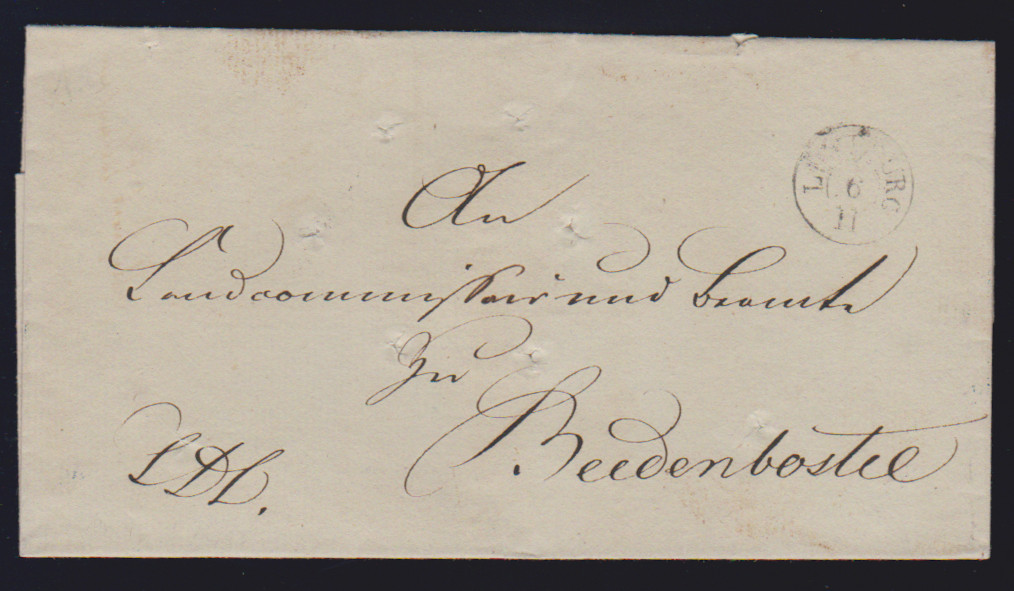 An
Landcommissair und Beamte
zu
Beedenbostel
6
11